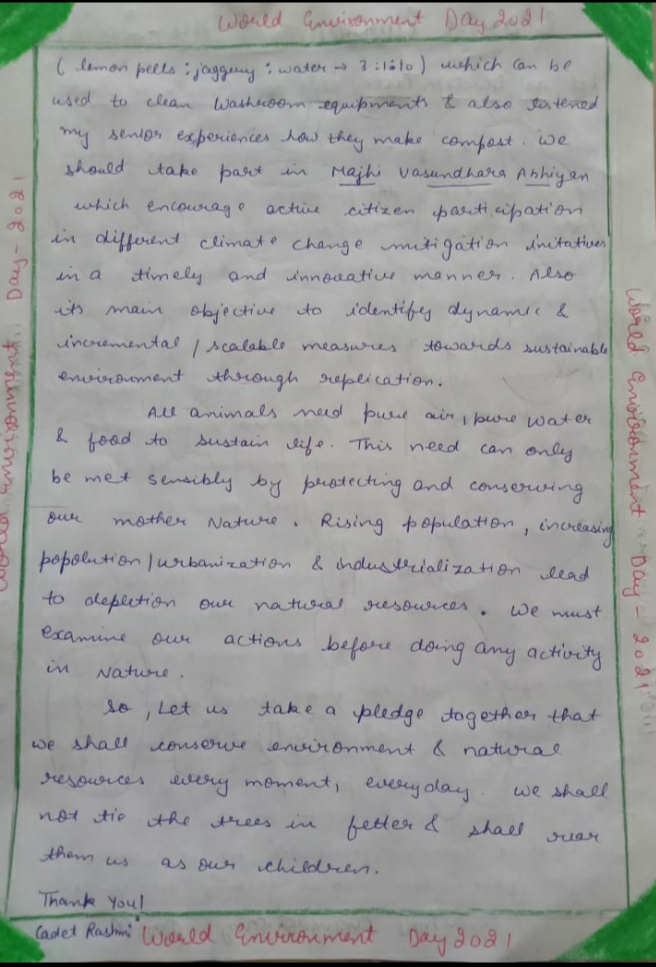 World Environment Day 2021
( lemon pells : jaggery : water → 3:1:10 ) which can be
used to clean washroom equipments & also listened
my senior experiences how they make compost. We
should take part in Majhi Vasundhara Abhiyan
which encourage active citizen participation
in different climate change mitigation initatives
in a timely and innovative manner. Also
its main objective to identify dynamic &
incremental / scalable measures towards sustainable
environment through replication.
All animals need pure air, pure water
& food to sustain life. This need can only
be met sensibly by protecting and conserving
our mother Nature. Rising population, increasing
popolution / urbanization & industrialization lead
to depletion our natural resources. We must
examine our actions before doing any activity
in Nature.
So, Let us take a pledge together that
we shall conserve environment & natural
resources every moment, everyday. We shall
not tie the trees in fetter & shall rear
them us as our children.
Thank you!
Cadet Rashmi
World Environment Day 2021
World Environment Day - 2021
World Environment Day - 2021